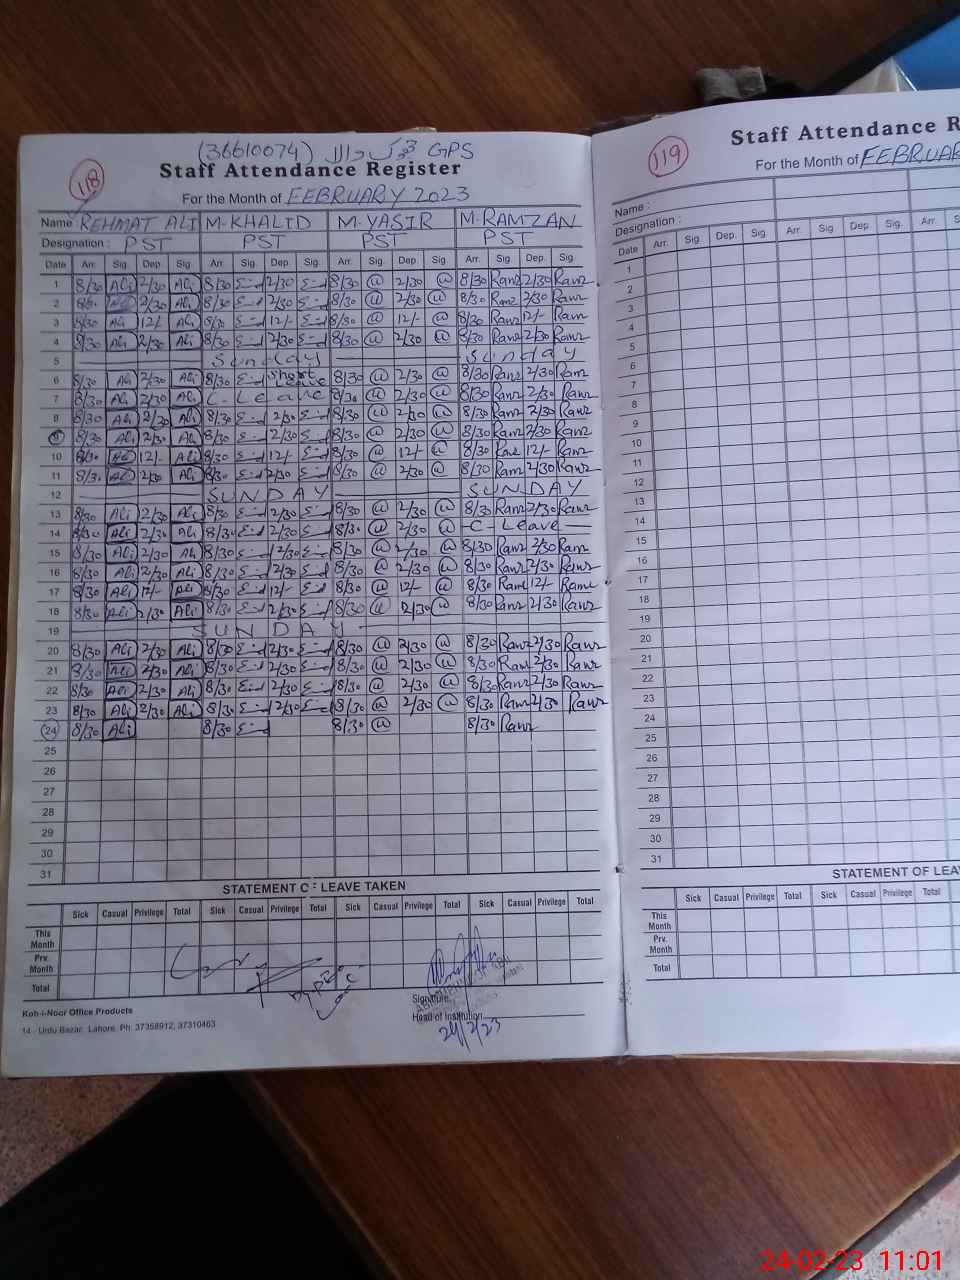 (36610074) GPS
118
Staff Attendance Register
For the Month of FEBRUARY 2023
Name REHMAT ALI M-KHALID M-YASIR M-RAMZAN
Designation : PST PST PST PST
Date Arr. Sig. Dep. Sig. Arr. Sig. Dep. Sig. Arr. Sig. Dep. Sig Arr. Sig Dep. Sig.
1 8/30 Ali 2/30 Ali 8/30 2/30 8/30 @ 2/30 @ 8/30 Ramz 2/30 Ramz
2 8/30 Ali 2/30 Ali 8/30 2/30 8/30 @ 2/30 @ 8/30 Ramz 2/30 Ramz
3 8/30 Ali 12/- Ali 8/30 12/- 8/30 @ 12/- @ 8/30 Ramz 12/- Ramz
4 8/30 Ali 2/30 Ali 8/30 2/30 8/30 @ 2/30 @ 8/30 Ramz 2/30 Ramz
5 Sunday Sunday
6 8/30 Ali 2/30 Ali 8/30 Short Leave 8/30 @ 2/30 @ 8/30 Ramz 2/30 Ramz
7 8/30 Ali 2/30 Ali C. Leave 8/30 @ 2/30 @ 8/30 Ramz 2/30 Ramz
8 8/30 Ali 2/30 Ali 8/30 2/30 8/30 @ 2/30 @ 8/30 Ramz 2/30 Ramz
9 8/30 Ali 2/30 Ali 8/30 2/30 8/30 @ 2/30 @ 8/30 Ramz 2/30 Ramz
10 8/30 Ali 12/- Ali 8/30 12/- 8/30 @ 12/- @ 8/30 Ramz 12/- Ramz
11 8/30 Ali 2/30 Ali 8/30 2/30 8/30 @ 2/30 @ 8/30 Ramz 2/30 Ramz
12 SUNDAY SUNDAY
13 8/30 Ali 2/30 Ali 8/30 2/30 8/30 @ 2/30 @ 8/30 Ramz 2/30 Ramz
14 8/30 Ali 2/30 Ali 8/30 2/30 8/30 @ 2/30 @ C- Leave
15 8/30 Ali 2/30 Ali 8/30 2/30 8/30 @ 2/30 @ 8/30 Ramz 2/30 Ramz
16 8/30 Ali 2/30 Ali 8/30 2/30 8/30 @ 2/30 @ 8/30 Ramz 2/30 Ramz
17 8/30 Ali 12/- Ali 8/30 12/- 8/30 @ 12/- @ 8/30 Ramz 12/- Ramz
18 8/30 Ali 2/30 Ali 8/30 2/30 8/30 @ 2/30 @ 8/30 Ramz 2/30 Ramz
19 SUNDAY
20 8/30 Ali 2/30 Ali 8/30 2/30 8/30 @ 2/30 @ 8/30 Ramz 2/30 Ramz
21 8/30 Ali 2/30 Ali 8/30 2/30 8/30 @ 2/30 @ 8/30 Ramz 2/30 Ramz
22 8/30 Ali 2/30 Ali 8/30 2/30 8/30 @ 2/30 @ 8/30 Ramz 2/30 Ramz
23 8/30 Ali 2/30 Ali 8/30 2/30 8/30 @ 2/30 @ 8/30 Ramz 2/30 Ramz
24 8/30 Ali 8/30 8/30 @ 8/30 Ramz
25
26
27
28
29
30
31
STATEMENT OF LEAVE TAKEN
Sick Casual Privilege Total Sick Casual Privilege Total Sick Casual Privilege Total Sick Casual Privilege Total
This Month
Prv. Month
Total
Signature
Head of Institution
24/2/23
Koh-i-Noor Office Products
14 - Urdu Bazar, Lahore. Ph: 37358912, 37310463
119
Staff Attendance R
For the Month of FEBRUAR
Name :
Designation :
Date Arr. Sig. Dep. Sig. Arr. Sig. Dep Sig. Arr.
1
2
3
4
5
6
7
8
9
10
11
12
13
14
15
16
17
18
19
20
21
22
23
24
25
26
27
28
29
30
31
STATEMENT OF LEA
Sick Casual Privilege Total Sick Casual Privilege Total
This Month
Prv. Month
Total
24-02-23 11:01